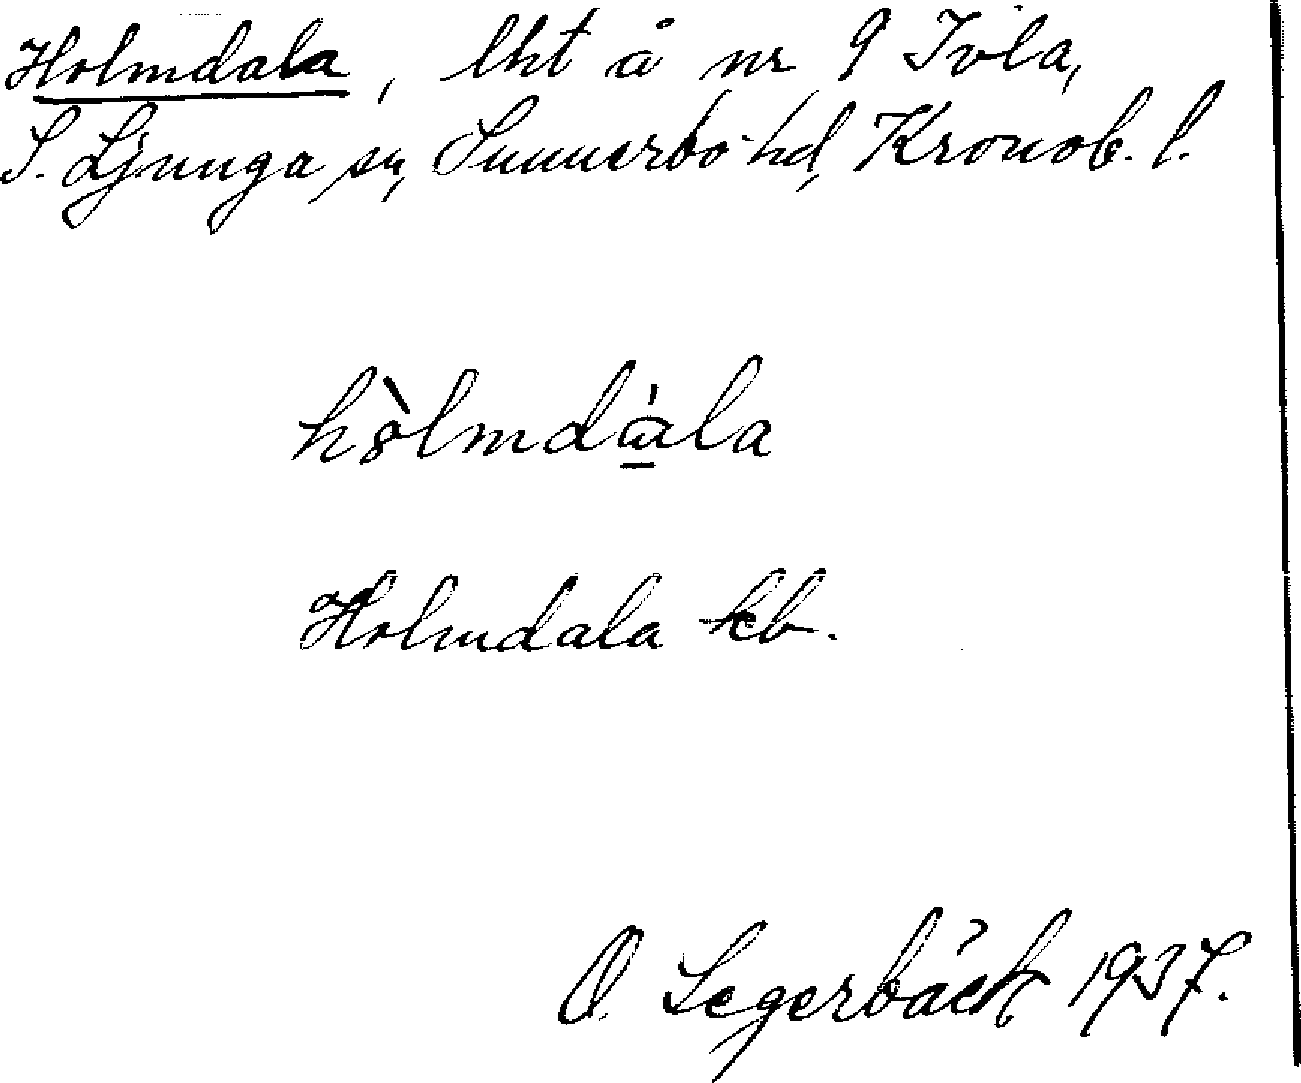 Holmdala, lht å nr 9 Ivla,
S. Ljunga sn, Sunnerbo hd, Kronob. l.
hòlmdàla
Holmdala kb.
O. Segerbäck 1937.